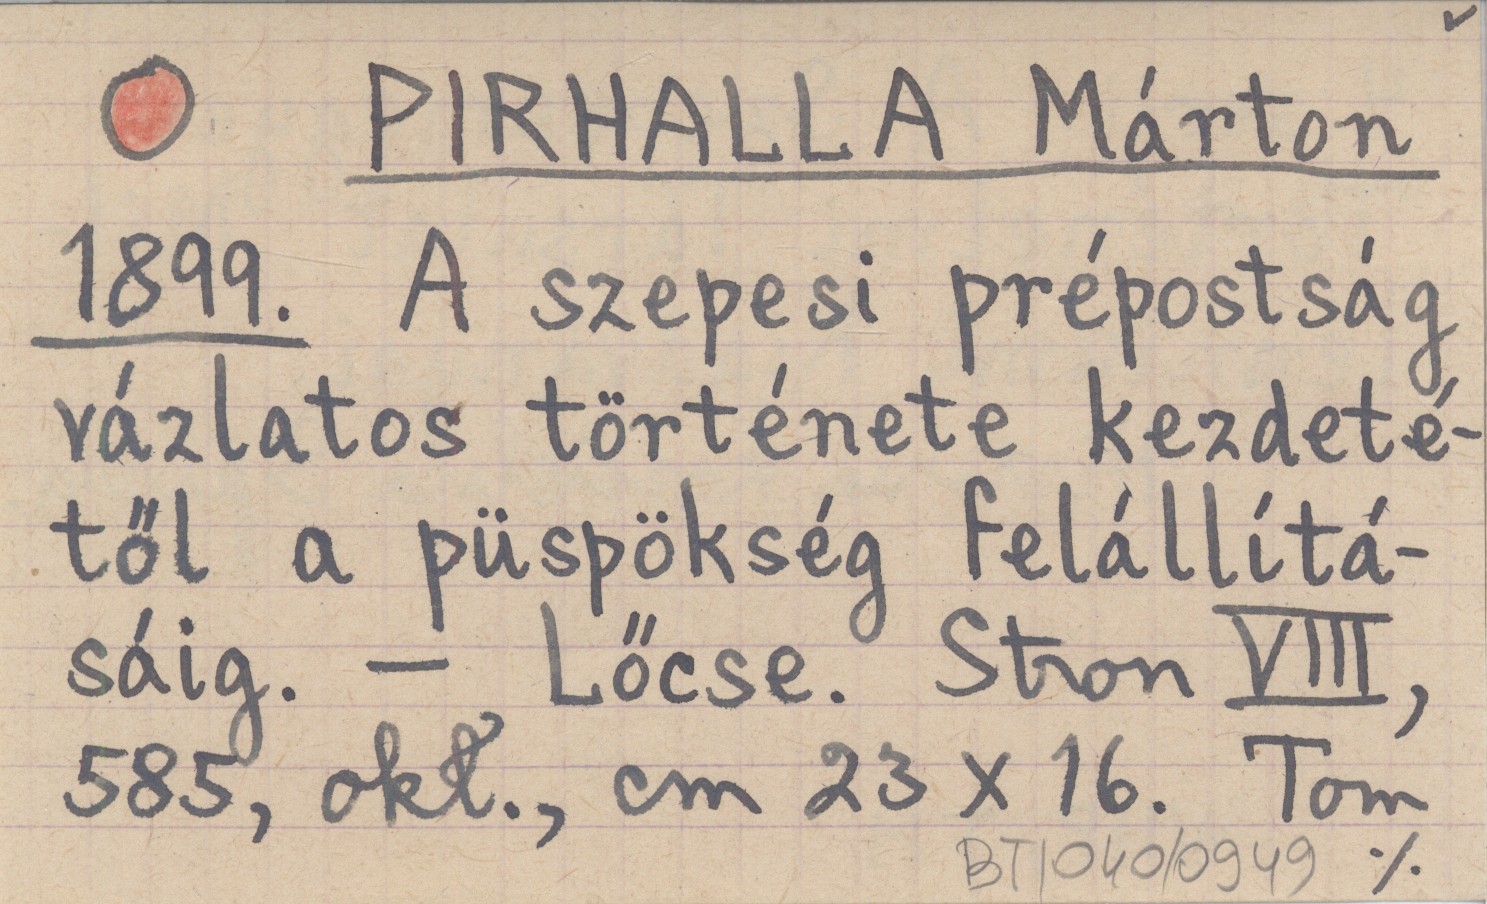 ✓
PIRHALLA Márton
1899. A szepesi prépostság
vázlatos története kezdeté-
től a püspökség felállítá-
sáig. — Lőcse. Stron VIII,
585, okł., cm 23 x 16. Tom
BT/040/0949 ./.